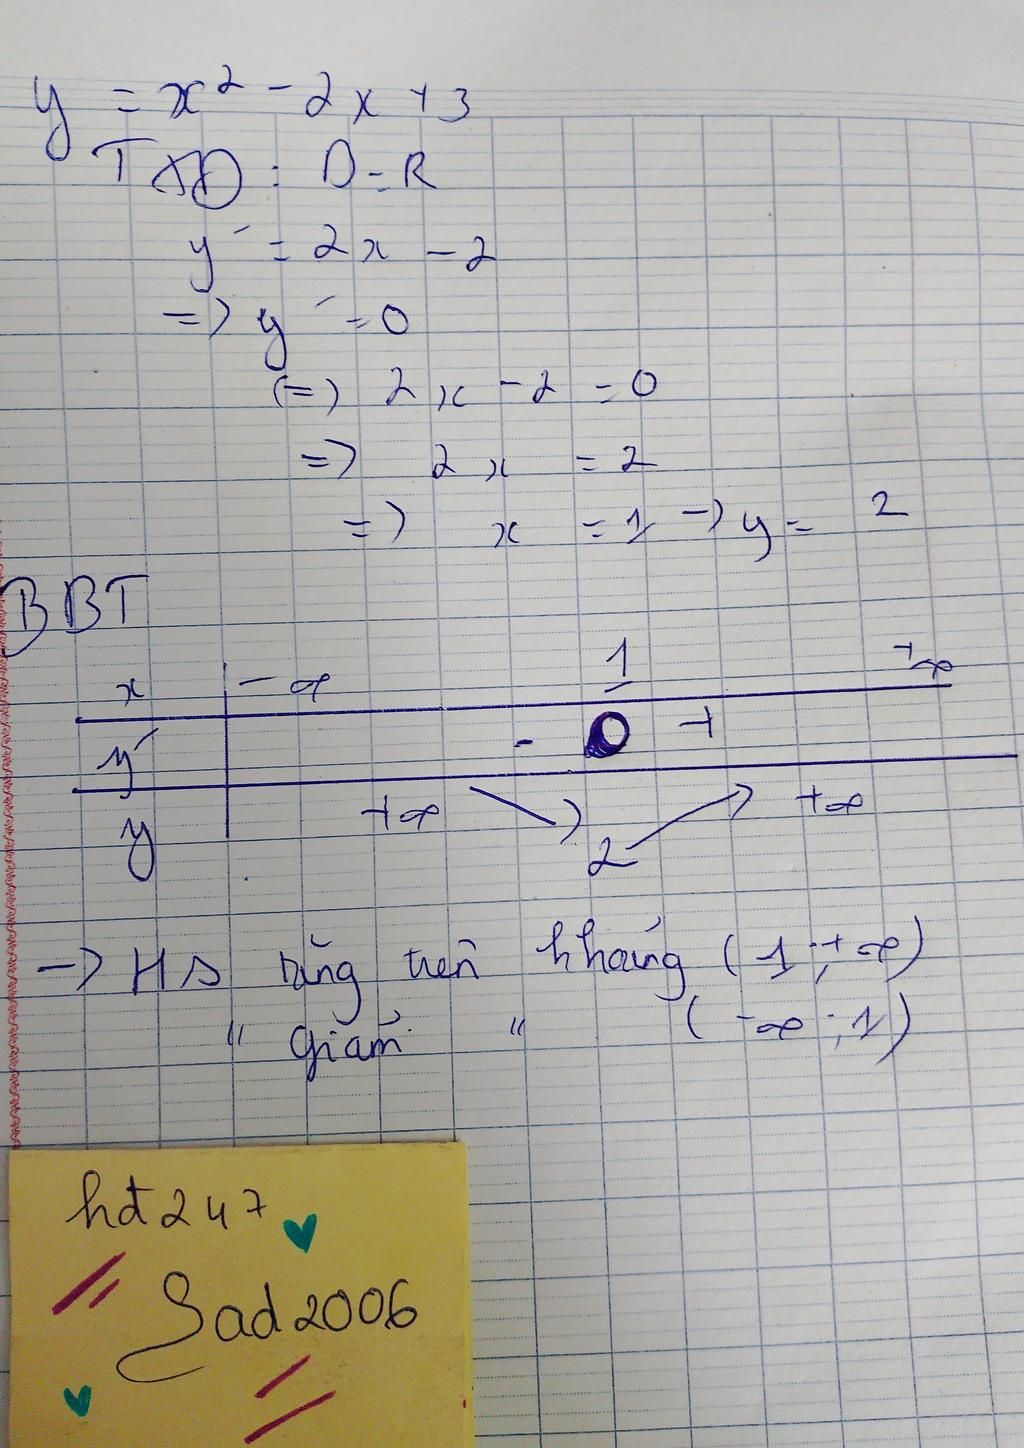 y = x² - 2x + 3
TXĐ : D = R
y' = 2x - 2
=> y' = 0
(=) 2x - 2 = 0
=> 2x = 2
=> x = 1 -> y = 2
BBT
x -∞ 1 +∞
y' - 0 +
y +∞ 2 +∞
-> HS tăng trên khoảng (1 ; +∞)
" giảm " (-∞ ; 1)
hđ247
Sad2006